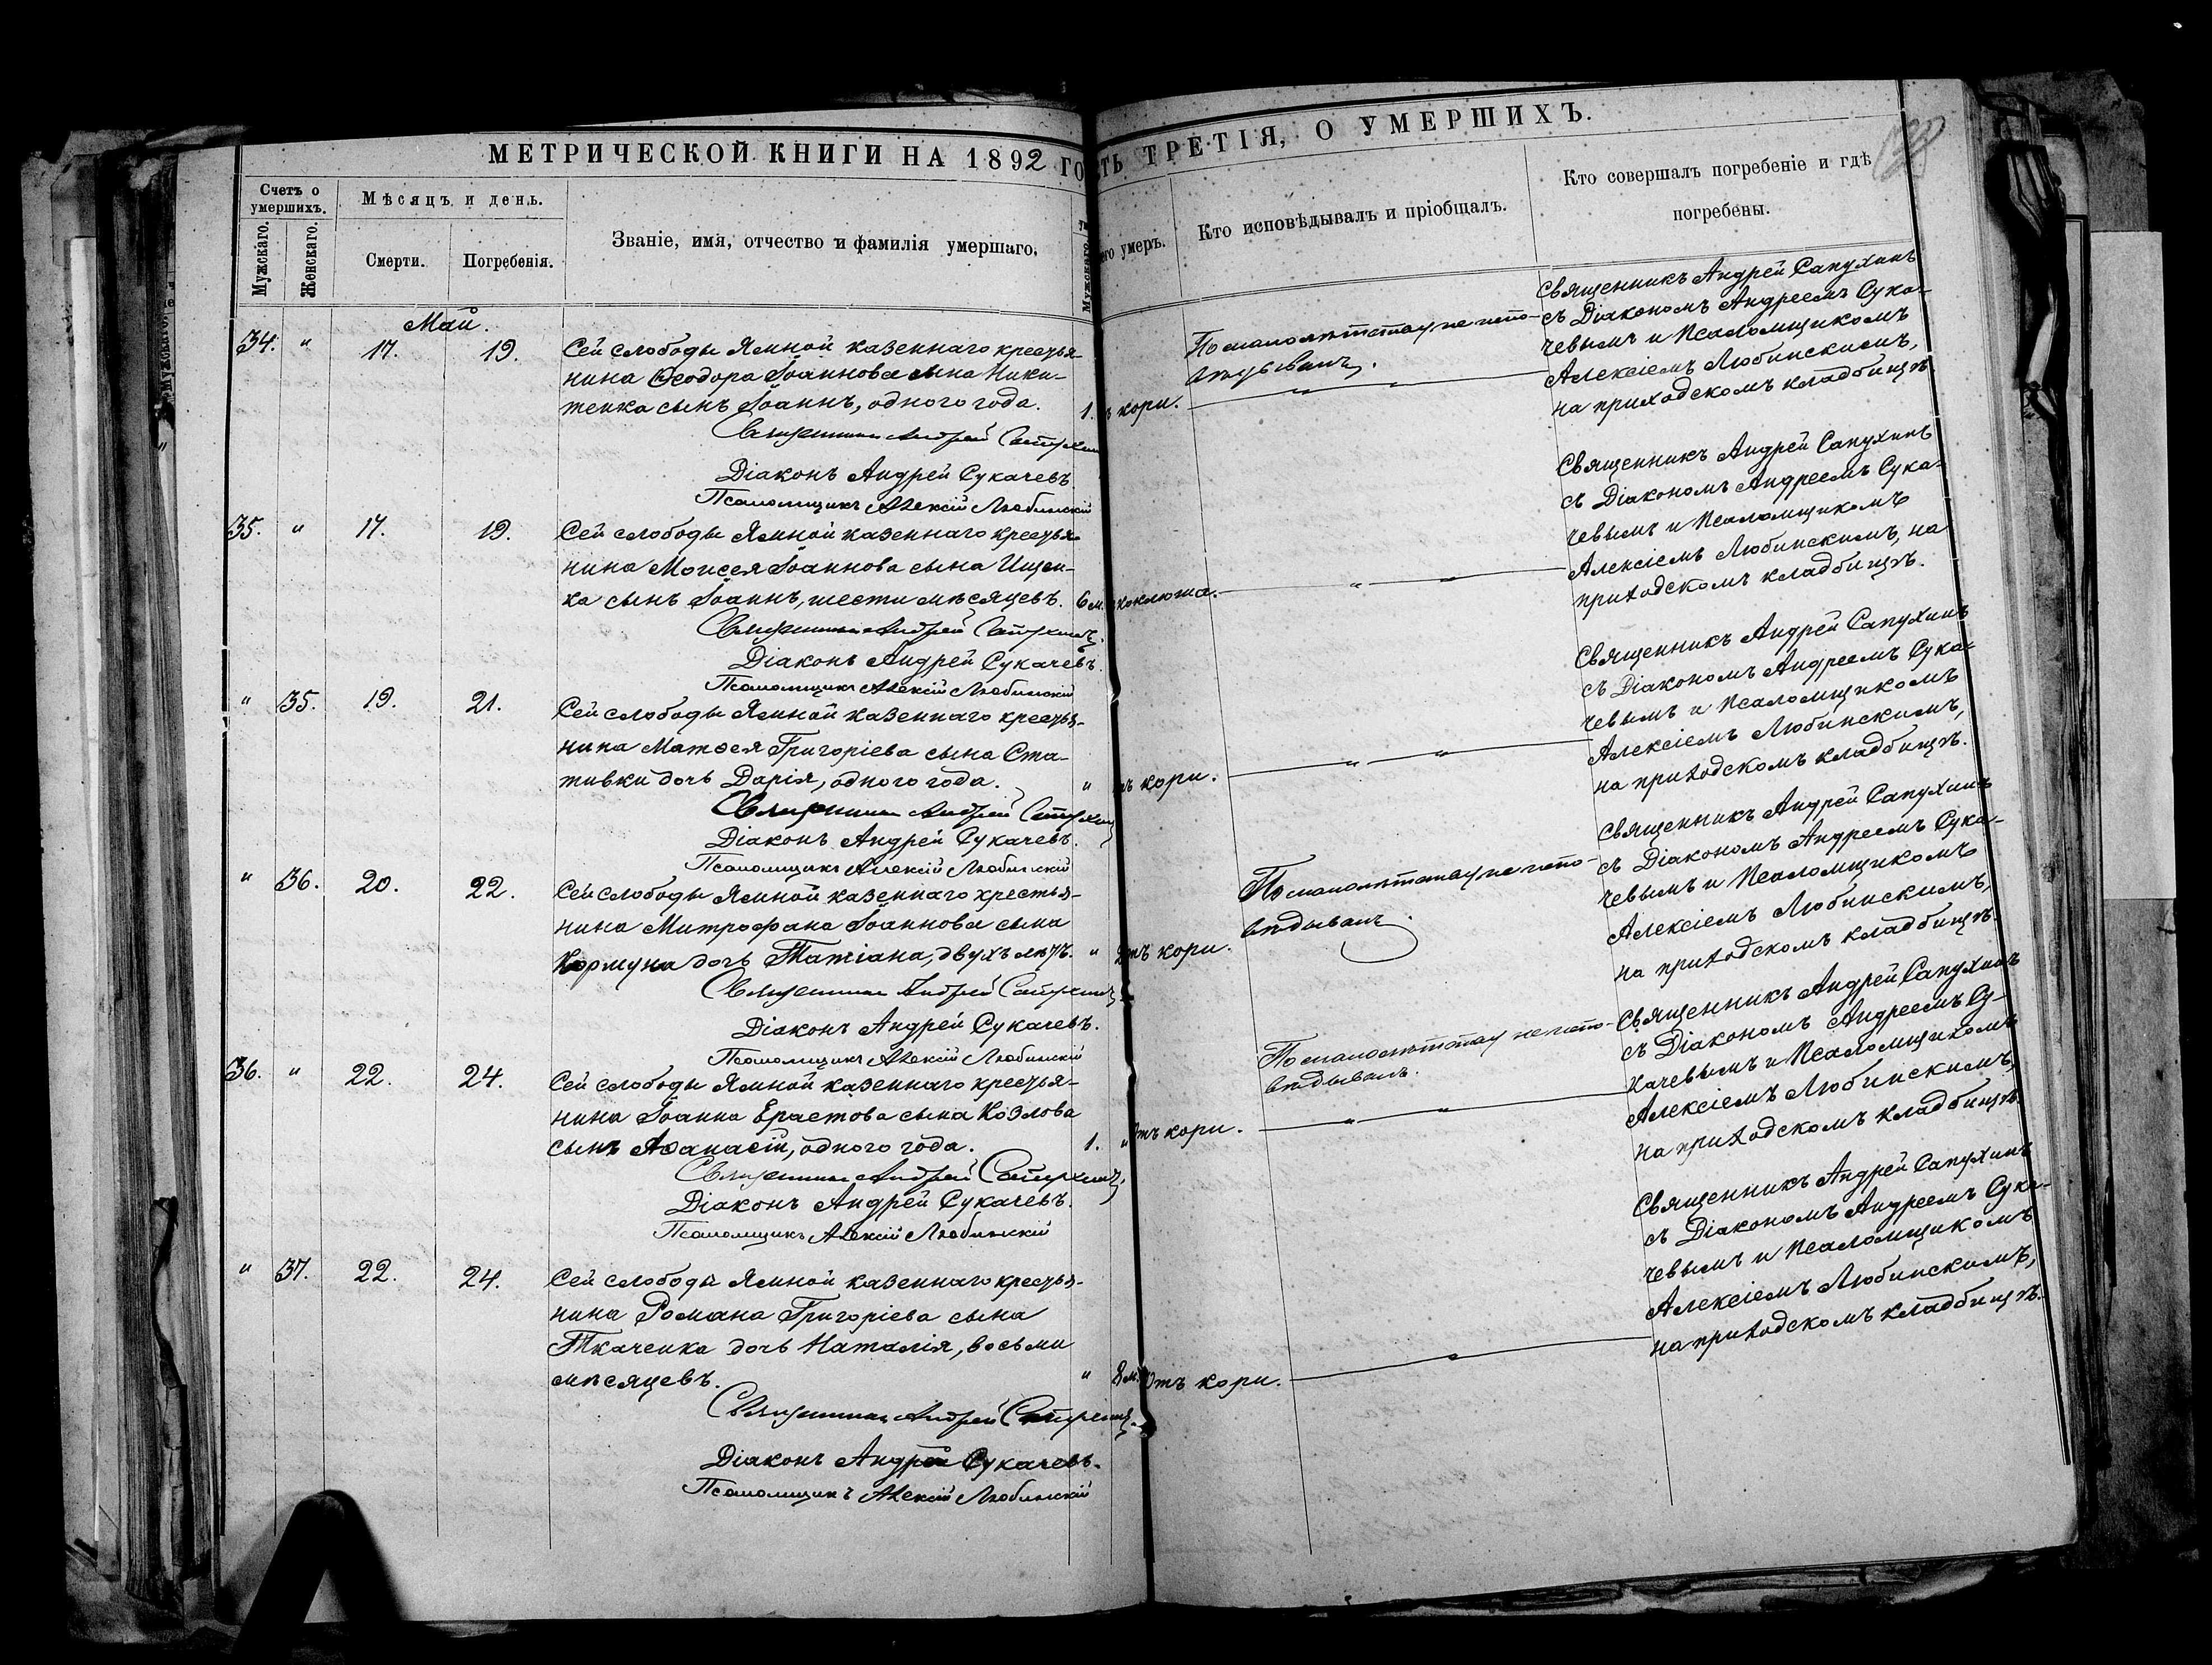 МЕТРИЧЕСКОЙ КНИГИ НА 1892 ГО
Счетъ о умершихъ.
Мужскаго.
Женскаго.
Мѣсяцъ и день.
Смерти.
Погребенія.
Званіе, имя, отчество и фамилія умершаго.
Мужскаго.
Май.
34. " 17. 19. Сей слободы Ямной казеннаго крестья-
нина Ѳеодора Іоаннова сына Ники-
тенка сынъ Іоаннъ, одного года. 1.
Священникъ Андрей Сапухинъ
Діаконъ Андрей Сукачевъ
Псаломщикъ Алексій Любинскій
35. " 17. 19. Сей слободы Ямной казеннаго крестья-
нина Моисея Іоаннова сына Ищен-
ка сынъ Іоаннъ, шести мѣсяцевъ. 6 м.
Священникъ Андрей Сапухинъ
Діаконъ Андрей Сукачевъ.
Псаломщикъ Алексій Любинскій
" 35. 19. 21. Сей слободы Ямной казеннаго крестья-
нина Матѳея Григоріева сына Ста-
тивки дочь Дарія, одного года. "
Священникъ Андрей Сапухинъ
Діаконъ Андрей Сукачевъ.
Псаломщикъ Алексій Любинскій
" 36. 20. 22. Сей слободы Ямной казеннаго крестья-
нина Митрофана Іоаннова сына
Кормуна дочь Татіана, двухъ лѣтъ. "
Священникъ Андрей Сапухинъ
Діаконъ Андрей Сукачевъ.
Псаломщикъ Алексій Любинскій
36. " 22. 24. Сей слободы Ямной казеннаго крестья-
нина Іоанна Ерастова сына Козлова
сынъ Аѳанасій, одного года. 1. "
Священникъ Андрей Сапухинъ
Діаконъ Андрей Сукачевъ.
Псаломщикъ Алексій Любинскій
" 37. 22. 24. Сей слободы Ямной казеннаго крестья-
нина Романа Григоріева сына
Ткаченка дочь Наталія, восьми
мѣсяцевъ. " 8 м.
Священникъ Андрей Сапухинъ
Діаконъ Андрей Сукачевъ.
Псаломщикъ Алексій Любинскій
ТЬ ТРЕТІЯ, О УМЕРШИХЪ.
его умеръ.
Кто исповѣдывалъ и пріобщалъ.
Кто совершалъ погребеніе и гдѣ
погребены.
ъ кори.
По малолѣтству не испо-
вѣдыванъ.
Священникъ Андрей Сапухинъ
съ Діакономъ Андреемъ Сука-
чевымъ и Псаломщикомъ
Алексіемъ Любинскимъ,
на приходскомъ кладбищѣ.
коклюша.
" "
Священникъ Андрей Сапухинъ
съ Діакономъ Андреемъ Сука-
чевымъ и Псаломщикомъ
Алексіемъ Любинскимъ, на
приходскомъ кладбищѣ.
тъ кори.
" "
Священникъ Андрей Сапухинъ
съ Діакономъ Андреемъ Сука-
чевымъ и Псаломщикомъ
Алексіемъ Любинскимъ,
на приходскомъ кладбищѣ.
тъ кори.
По малолѣтству не испо-
вѣдыванъ.
Священникъ Андрей Сапухинъ
съ Діакономъ Андреемъ Сука-
чевымъ и Псаломщикомъ
Алексіемъ Любинскимъ,
на приходскомъ кладбищѣ.
Отъ кори.
По малолѣтству не испо-
вѣдыванъ.
" "
Священникъ Андрей Сапухинъ
съ Діакономъ Андреемъ Су-
качевымъ и Псаломщикомъ
Алексіемъ Любинскимъ,
на приходскомъ кладбищѣ.
Отъ кори.
"
Священникъ Андрей Сапухинъ
съ Діакономъ Андреемъ Сука-
чевымъ и Псаломщикомъ
Алексіемъ Любинскимъ,
на приходскомъ кладбищѣ.